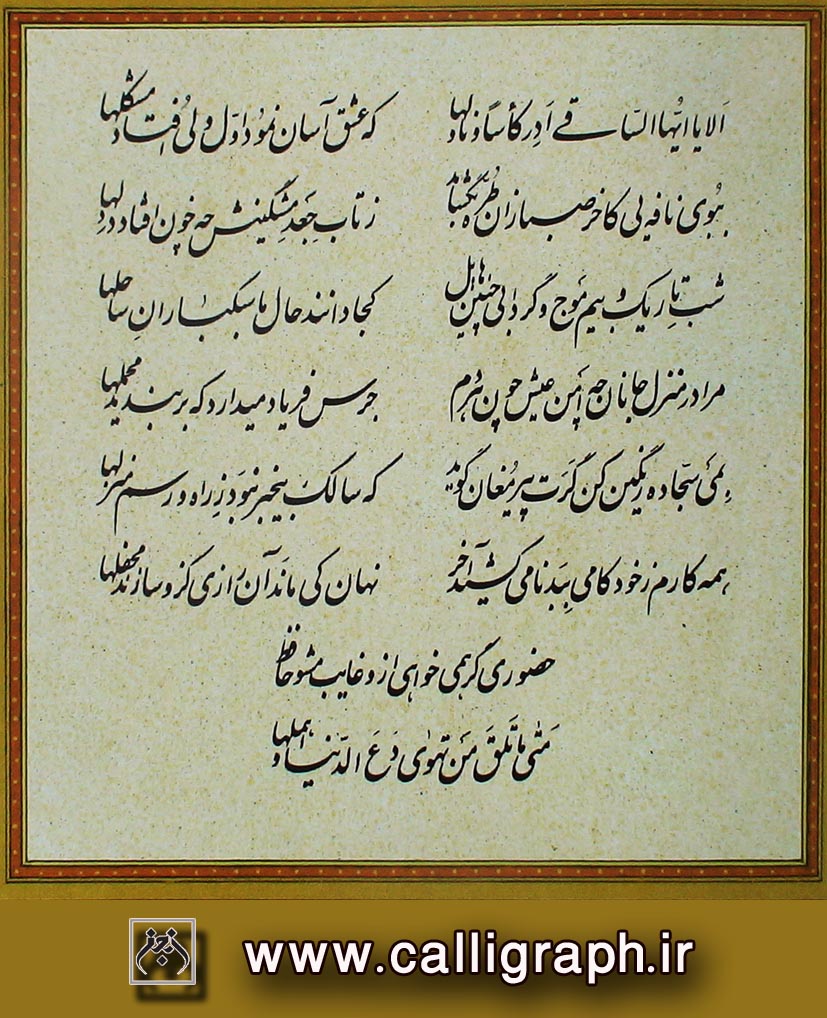 اَلا یا ایُّها السّاقی اَدِر کأساً و ناوِلها که عشق آسان نمود اوّل ولی اُفتاد مشکلها
ببوی نافه‌یی کاخر صبا زان طُرّه بگشاید ز تابِ جَعدِ مشگینش چه خون افتاد در دلها
شب تاریک و بیم مَوج و گردابی چنین هایل کجا دانند حال ما سبکباران ساحلها
مرا در منزل جانان چه اَمن عیش چون هر دم جرس فریاد میدارد که بربندید محملها
بمی سجّاده رنگین کن گرَت پیر مُغان گوید که سالک بیخبر نبوَد ز راه و رسم منزلها
همه کارم ز خود کامی ببدنامی کشید آخر نهان کی ماند آن رازی کزو سازند محفلها
حضوری گر همی خواهی ازو غایب مشو حافظ
مَتی ما تَلقَ مَن تهوی دَعَ الدّنیا و اَهملها
www.calligraph.ir